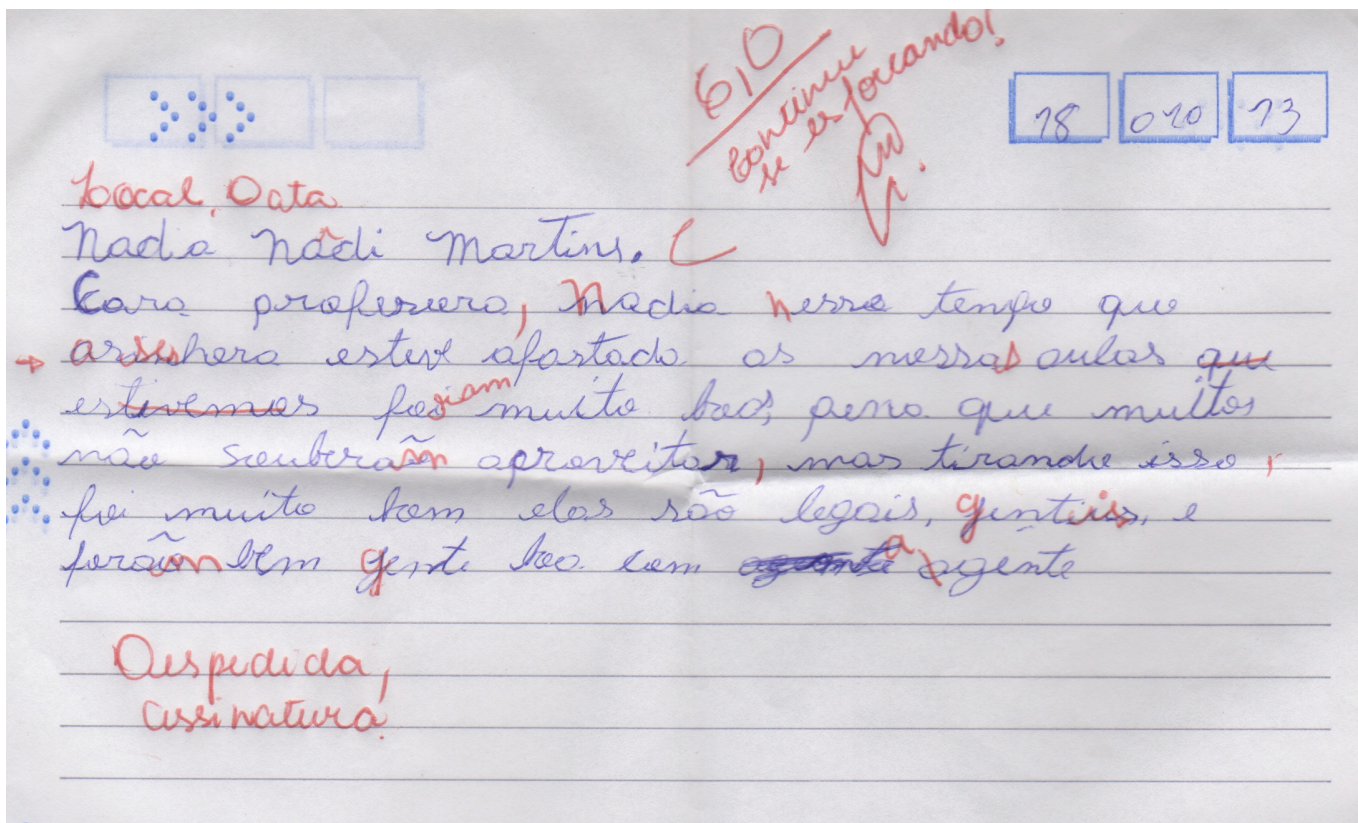 6,0
Continue
se esforcando!
18 010 13
Local, Data
Nadia Nadi Martins.
Cara professora, Nadia nesse tempo que
a senhora esteve afastada as nossas aulas que
estivemos foriam muito boas, pena que muitos
não souberam aproveitar, mas tirando isso,
foi muito bom elas são legais, gentis, e
foram bem gente boa com a gente
Despedida,
assinatura.